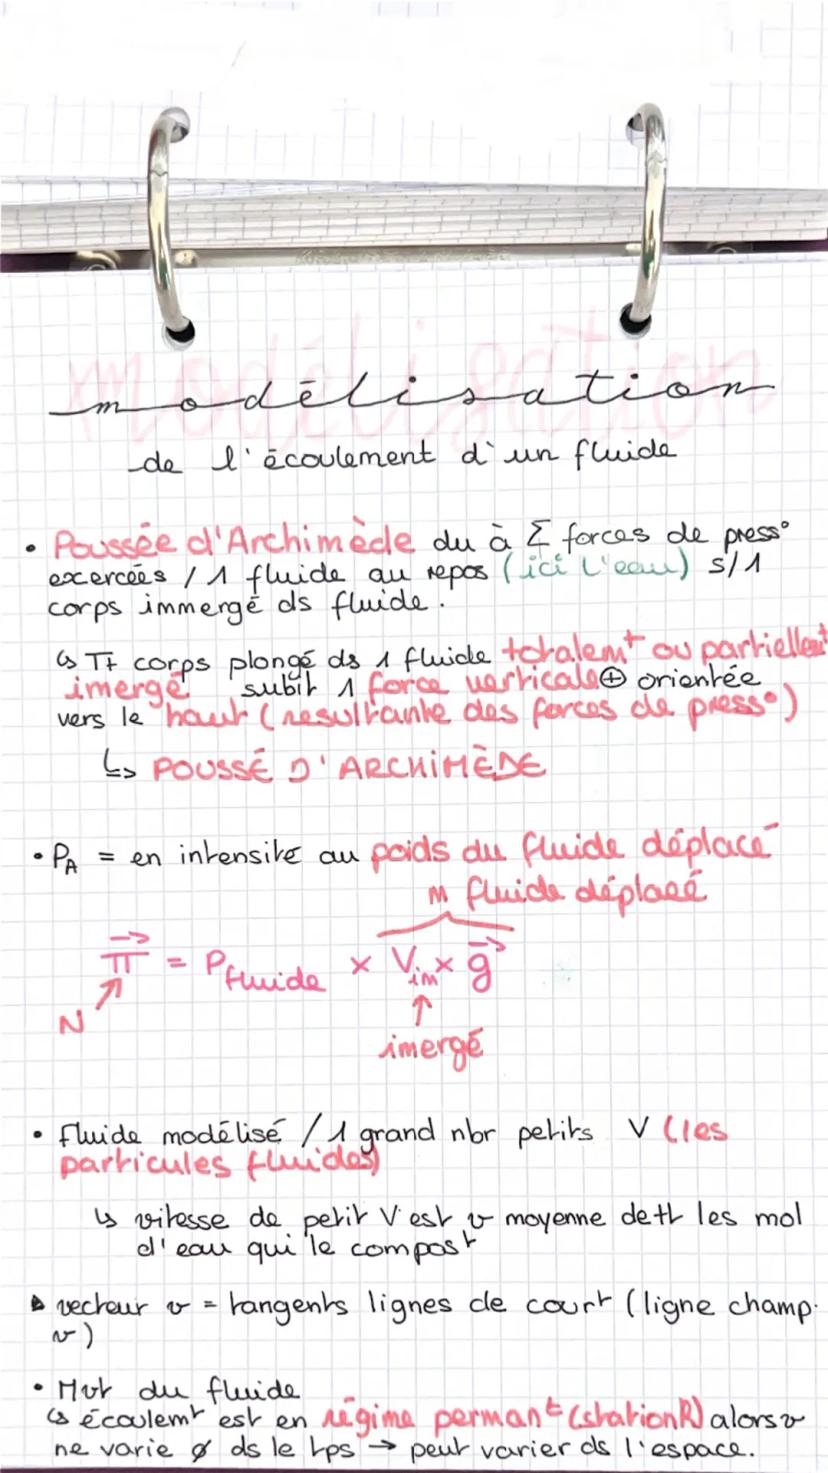 modélisation
de l'écoulement d'un fluide
• Poussée d'Archimède du à Σ forces de press°
exercées / 1 fluide au repos (ici l'eau) s/1
corps immergé ds fluide.
↳ Tt corps plongé ds 1 fluide totalemt ou partiellemt
imergé subit 1 force verticale ⊕ orientée
vers le haut (resultante des forces de press°)
↳ POUSSÉ D'ARCHIMÈDE
• PA = en intensité au poids du fluide déplacé
M fluide déplacé
π⃗ = ρfluide × Vim × g⃗
N
imergé
• fluide modélisé / 1 grand nbr petits V (les
particules fluides)
↳ vitesse de petit V est v moyenne de tt les mol
d'eau qui le compost
▲ vecteur v = tangents lignes de court (ligne champ.
v)
• Mvt du fluide
↳ écoulemt est en régime permant (stationR) alors v
ne varie ∅ ds le tps → peut varier ds l'espace.